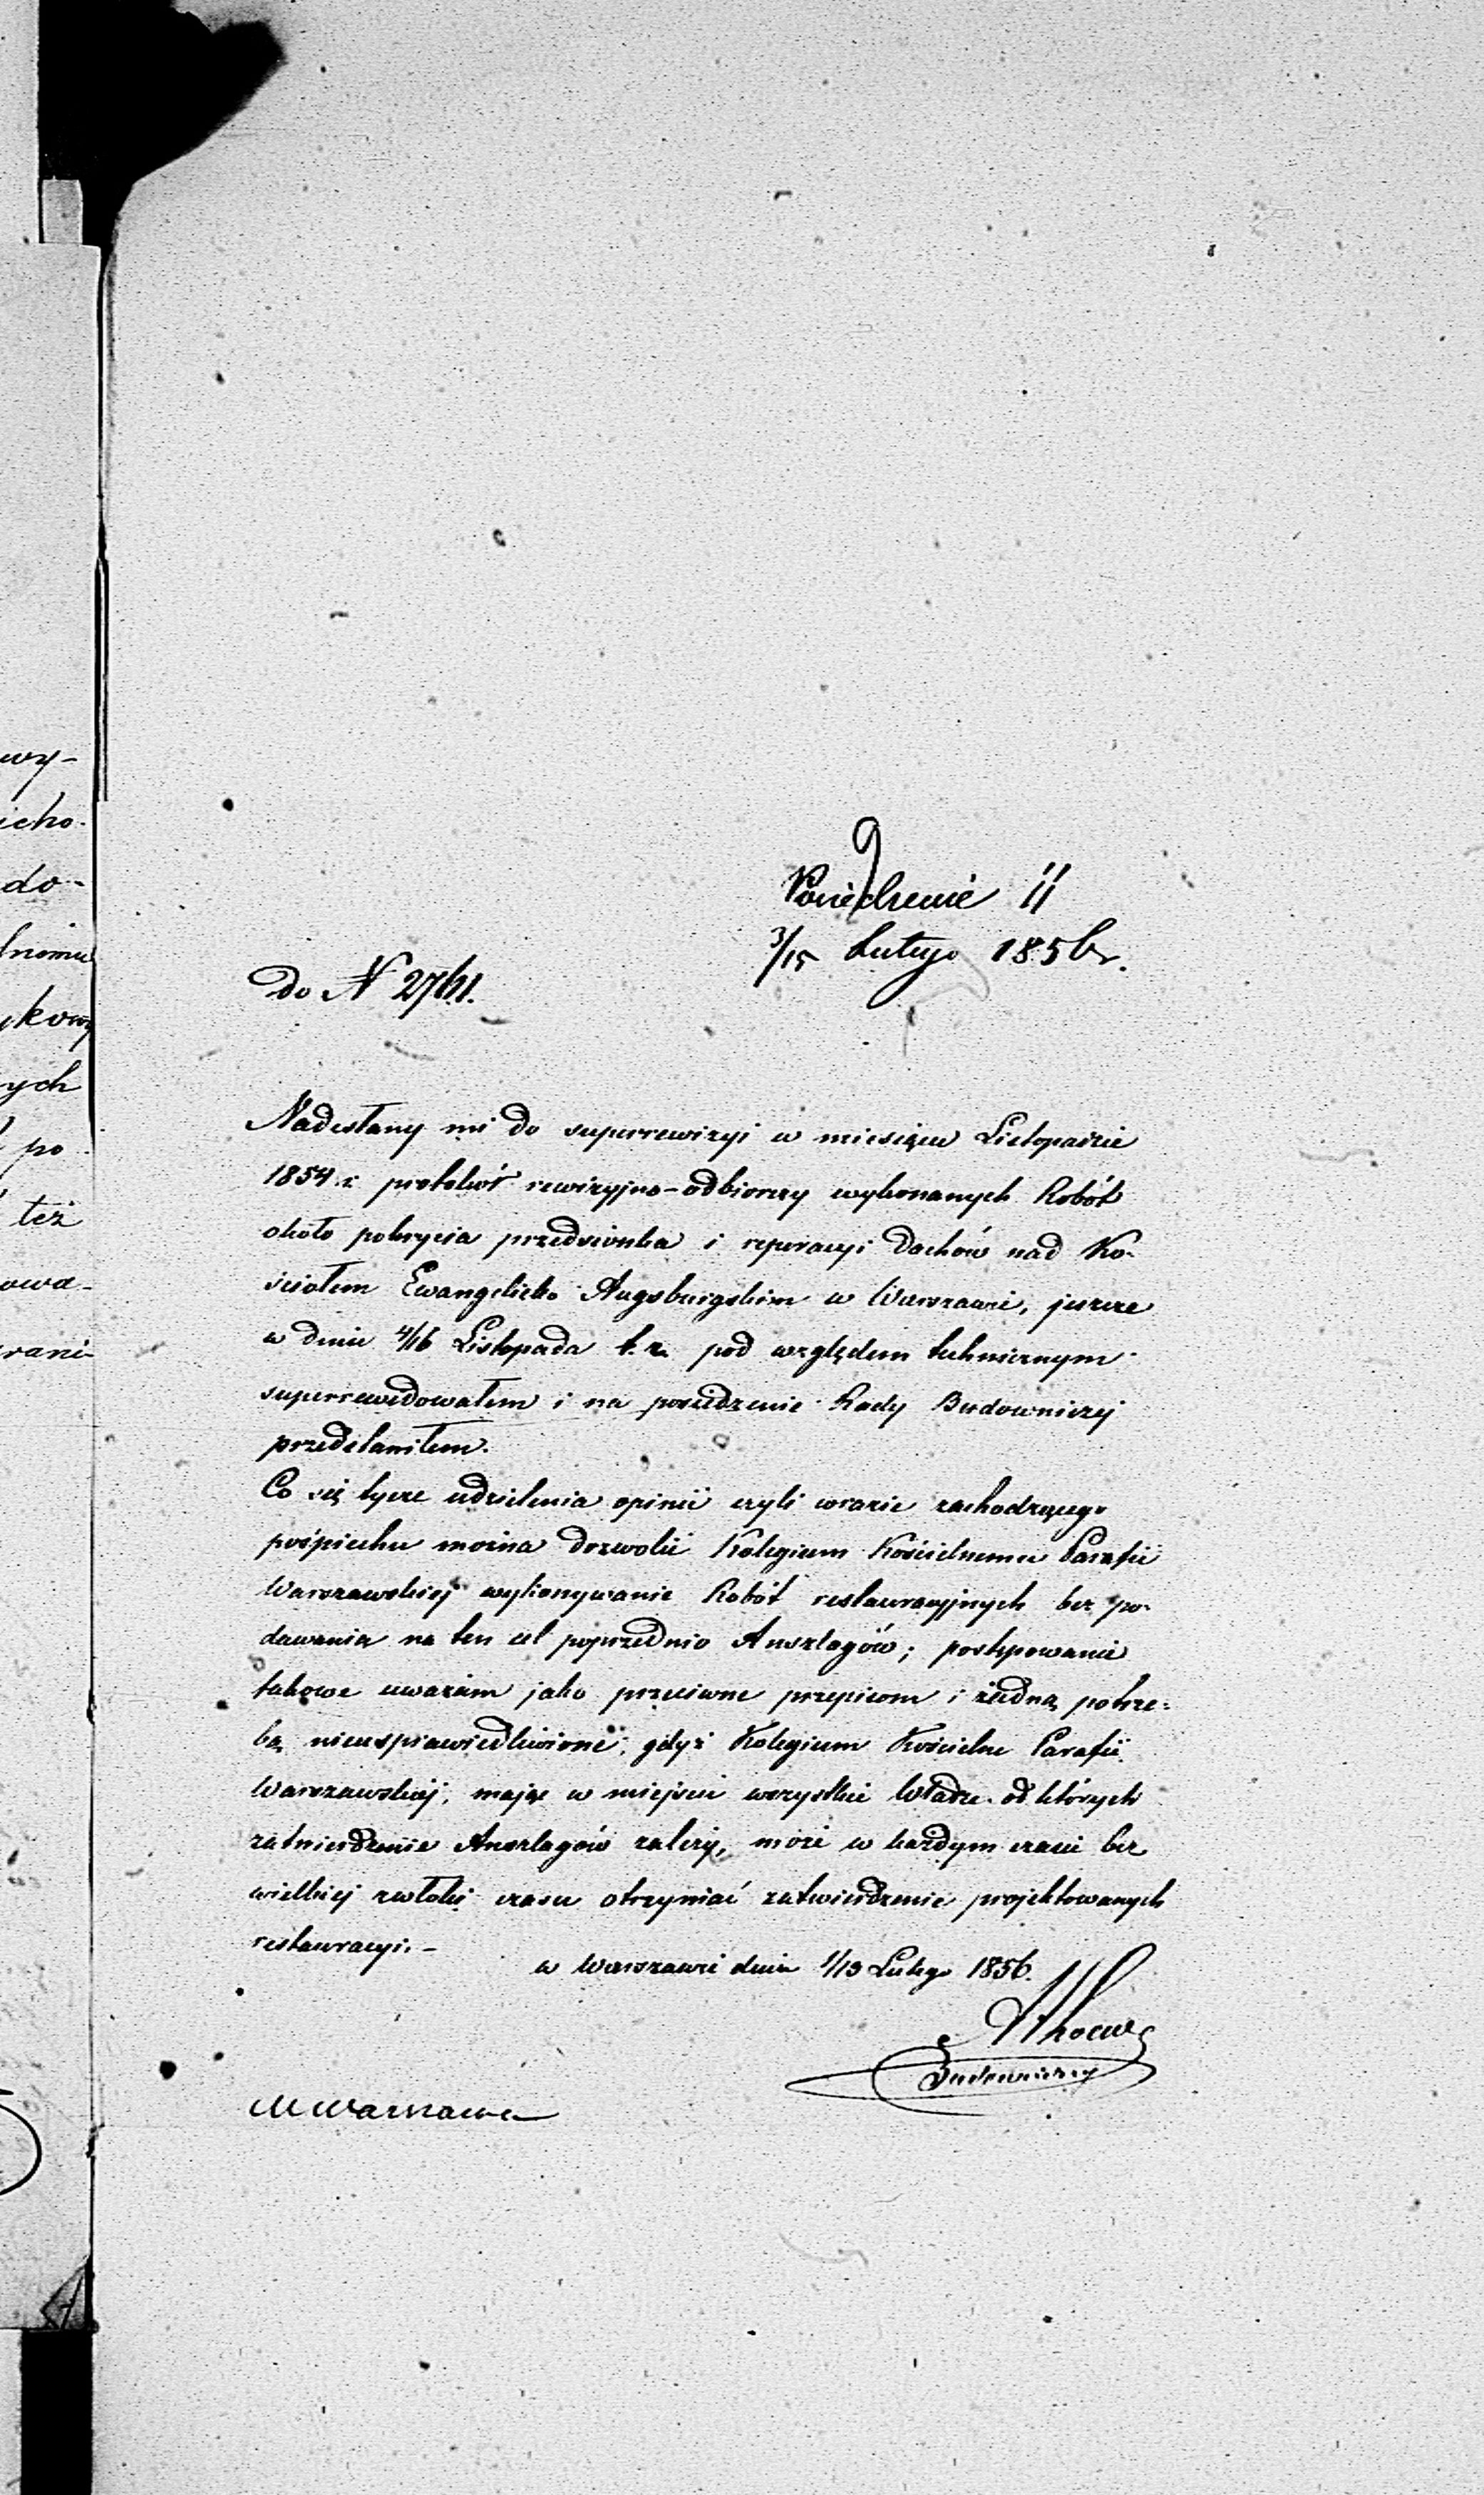 wy-
icho-
do-
kowy
ych
po
też
owa-
9
Posiedzenie 11
3/15 Lutego 1856 r.
do N 2761.
Nadesłany mi do superrewizyi w miesiącu Listopadzie
1854 r protokół rewizyjno-odbiorczy wykonanych Robót
około pokrycia przedsionka i reperacyi Dachów nad Ko-
ściołem Ewangelicko Augsburgskim w Warszawie, jeszcze
w dniu 4/16 Listopada t.r. pod względem technicznym
superrewidowałem i na posiedzenie Rady Budowniczej
przedstawiłem.
Co się tycze udzielenia opinii czyli wrazie zachodzącego
pośpiechu można dozwolić Kolegium Kościelnemu Parafii
Warszawskiej wykonywanie Robót restauracyjnych bez po-
dawania na ten cel poprzednio Anszlagów; postępowanie
takowe uważam jako przeciwne przepisom i żadną potrze-
bą nieusprawiedliwione, gdyż Kolegium Kościelne Parafii
Warszawskiej, mając w miejscu wszystkie Władze od których
zatwierdzenie Anszlagów zależy, może w każdym czasie bez
wielkiej zwłoki czasu otrzymać zatwierdzenie projektowanych
restauracyi. -
w Warszawie dnia 1/13 Lutego 1856.
Budowniczy